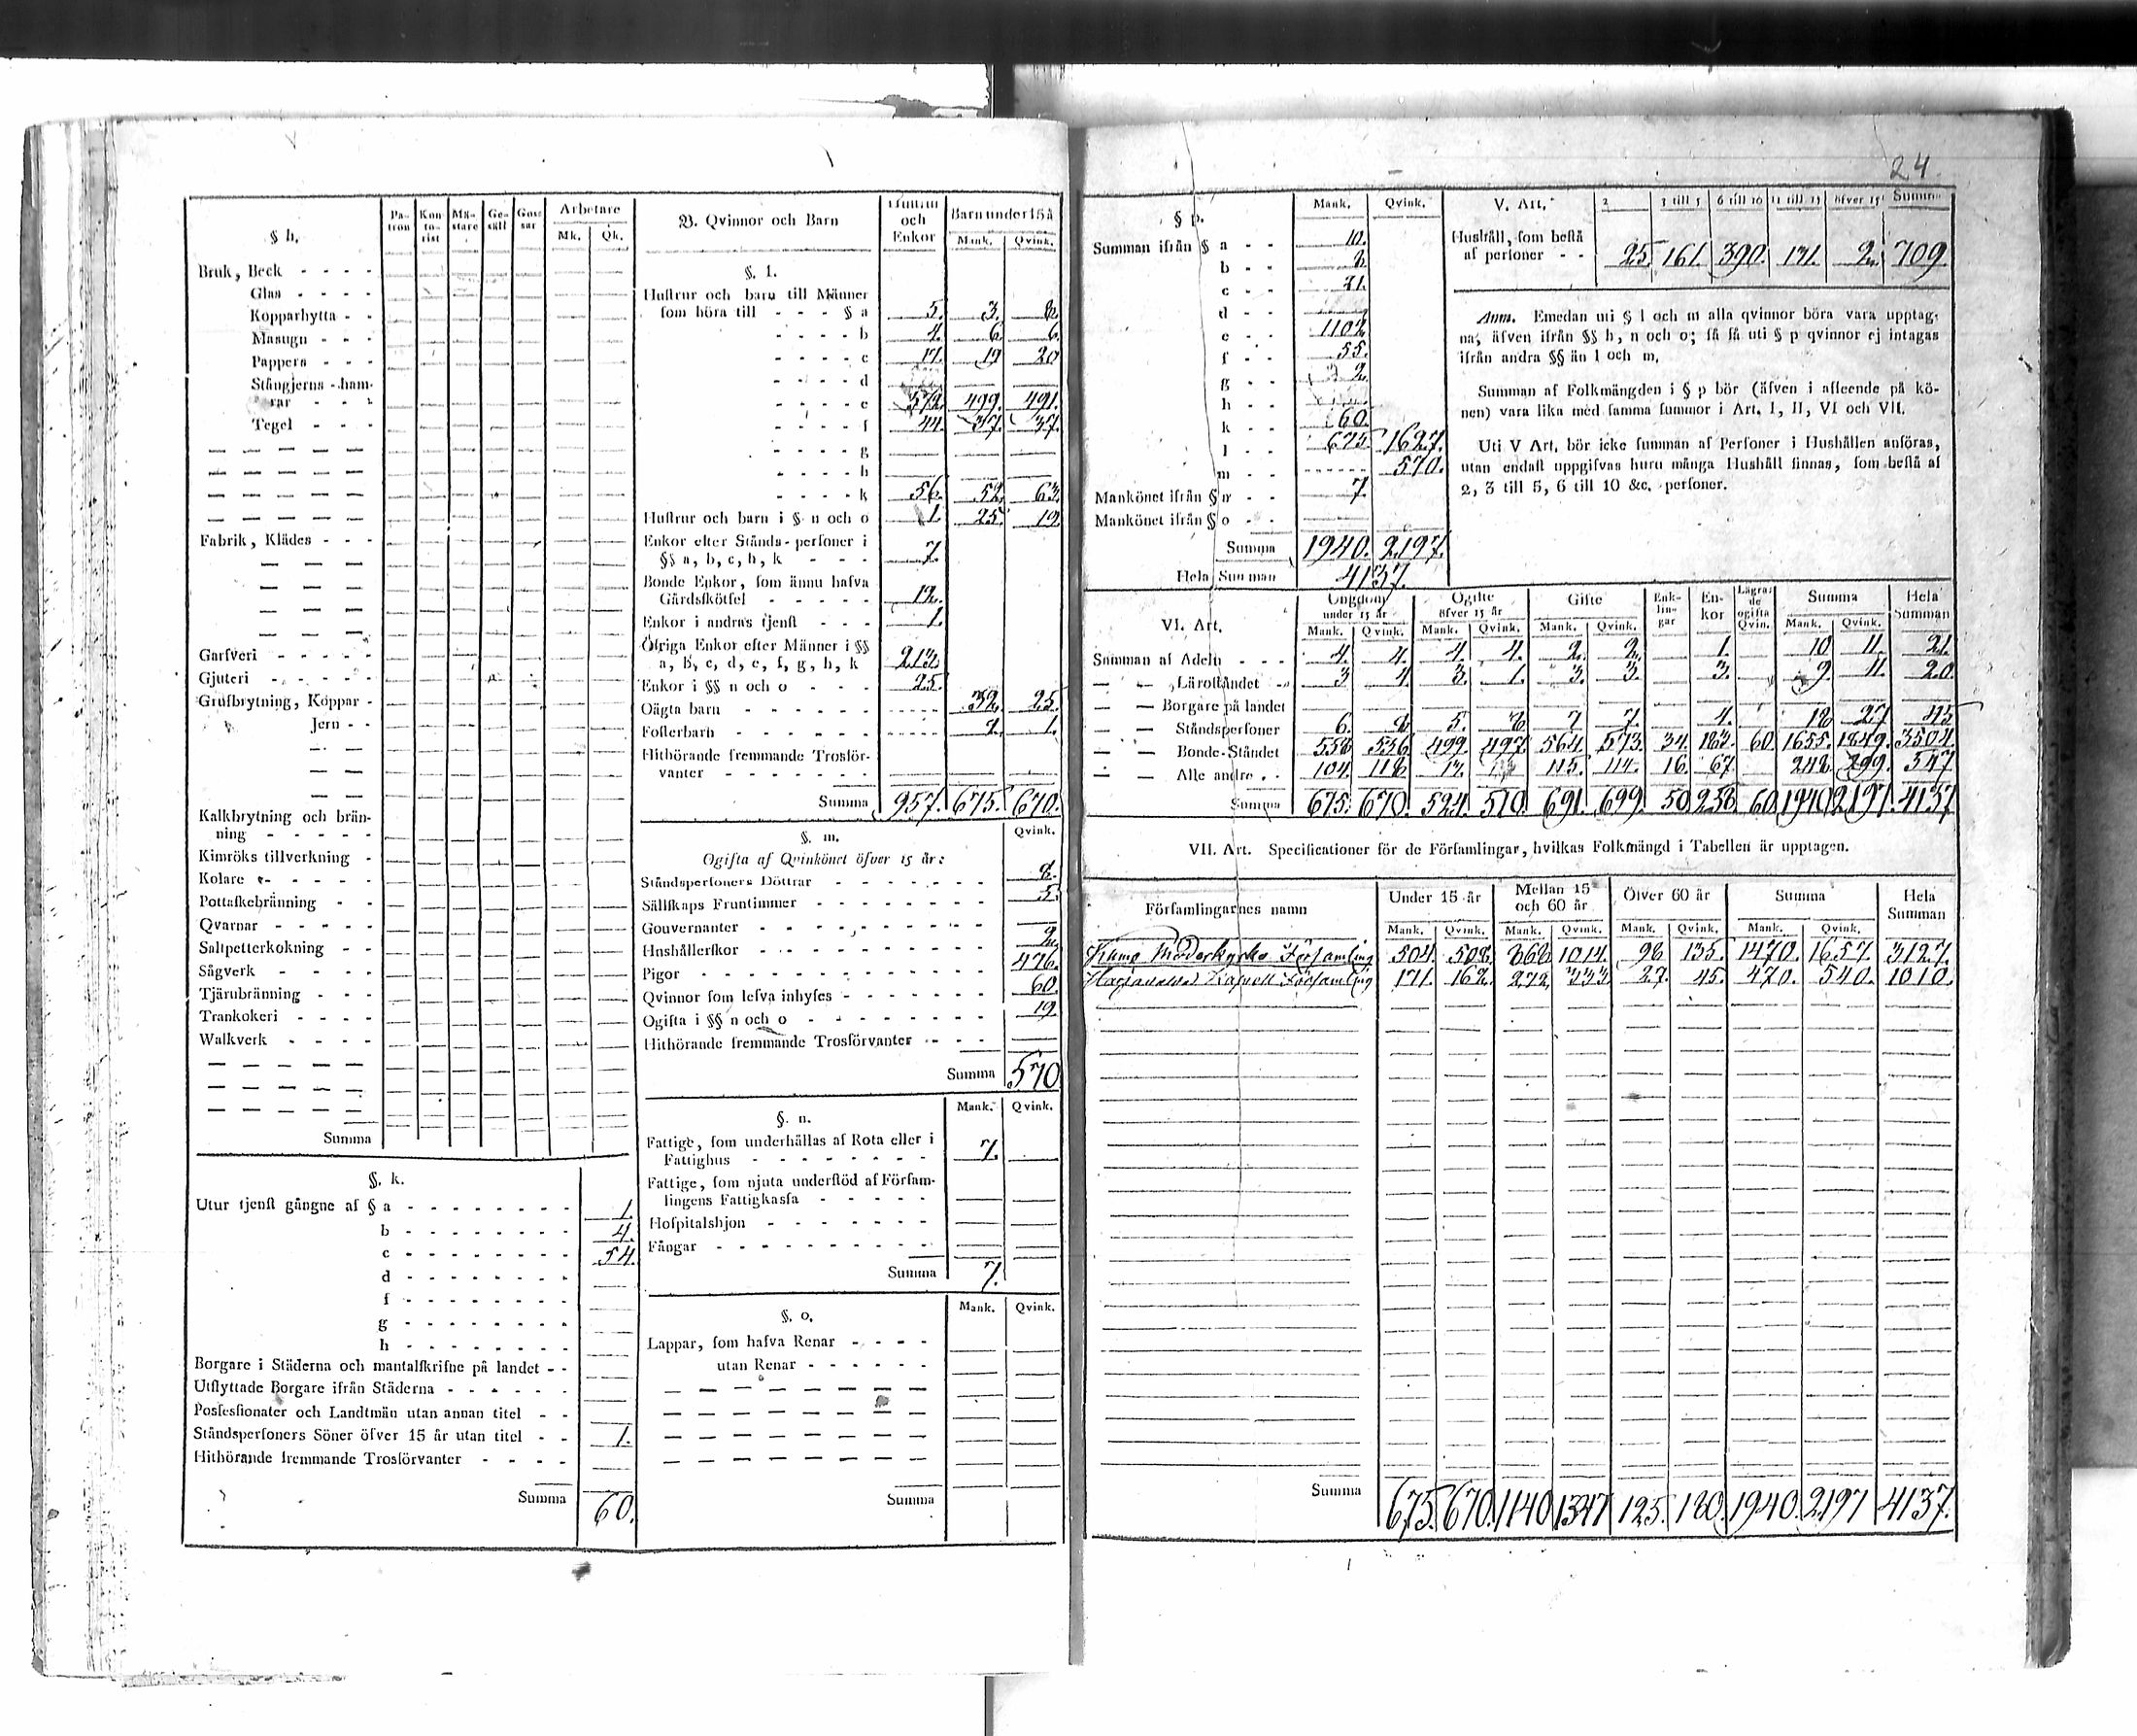 24.
§ h. Pa-tron Kon-to-rist Mä-stare Ge-säll Gos-sar Arbetare Mk. Qk.
Bruk, Beck - - - -
Glas - - - -
Kopparhytta - -
Masugn - - -
Pappers - - -
Stångjerns-ham-
rar - - -
Tegel - - -
Fabrik, Klädes - - -
Garfveri - - - - -
Gjuteri - - - - -
Grufbrytning, Koppar -
Jern - -
Kalkbrytning och brän-
ning - - - - -
Kimröks tillverkning -
Kolare - - - - -
Pottaskebränning - -
Qvarnar - - - - -
Saltpetterkokning - -
Sågverk - - - - -
Tjärubränning - - -
Trankokeri - - - -
Walkverk - - - -
Summa
§. k.
Utur tjenst gångne af § a - - - 1.
b - - - 4.
c - - - 54.
d - - -
f - - -
g - - -
h - - -
Borgare i Städerna och mantalskrifne på landet - -
Utflyttade Borgare ifrån Städerna - - - - - -
Possessionater och Landtmän utan annan titel - -
Ståndspersoners Söner öfver 15 år utan titel - - 1.
Hithörande fremmande Trosförvanter - - - -
Summa 60.
B. Qvinnor och Barn Hustrur och Enkor Barn under 15 å Mank. Qvink.
§. l.
Hustrur och barn till Männer
som höra till - - - § a 5. 3. 8.
- - - - b 4. 6. 6.
- - - - c 17. 19 20
- - - - d
- - - - e 572. 499. 491.
- - - - f 44. 37. 37.
- - - - g
- - - - h
- - - - k 56. 52. 63.
Hustrur och barn i § n och o 1. 25. 19.
Enkor efter Stånds-personer i
§§ a, b, c, h, k - - - 7.
Bonde Enkor, som ännu hafva
Gårdsskötsel - - - - - 12.
Enkor i andras tjenst - - - 1.
Öfriga Enkor efter Männer i §§
a, b, c, d, e, f, g, h, k 213.
Enkor i §§ n och o - - - 25.
Oägta barn - - - - - - 32. 25.
Fosterbarn - - - - - - 2. 1.
Hithörande fremmande Trosför-
vanter - - - - - - -
Summa 957. 675. 670.
§. m. Qvink.
Ogifta af Qvinkönet öfver 15 år:
Ståndspersoners Döttrar - - - 8.
Sällskaps Fruntimmer - - - 5.
Gouvernanter - - -
Hushållerskor - - - 2.
Pigor - - - 476.
Qvinnor som lefva inhyses - - - 60.
Ogifta i §§ n och o - - - 19.
Hithörande fremmande Trosförvanter - - -
Summa 570
§. n. Mank. Qvink.
Fattige, som underhållas af Rota eller i
Fattighus - - - 7.
Fattige, som njuta understöd af Försam-
lingens Fattigkassa - - - - -
Hospitalshjon - - - - - - -
Fångar - - - - - - - - -
Summa 7.
§. o. Mank. Qvink.
Lappar, som hafva Renar - - - -
utan Renar - - - - - -
Summa
§ p. Mank. Qvink.
Summan ifrån § a - - 10.
b - - 8.
c - - 21.
d - -
e - - 1102
f - - 55.
g - - 2.
h - -
k - - 60.
l - - 675. 1627.
m - - 570.
Mankönet ifrån § n - - 7.
Mankönet ifrån § o - -
Summa 1940. 2197.
Hela Summan 4137.
V. Art. 2 3 till 5 6 till 10 11 till 15 öfver 15 Summa
Hushåll, som bestå
af personer - - 25. 161. 390. 131. 2. 709.
Anm. Emedan uti § l och m alla qvinnor böra vara uptag-
na; äfven ifrån §§ h, n och o; få få uti § p qvinnor ej intagas
ifrån andra §§ än l och m.
Summan af Folkmängden i § p bör (äfven i afseende på kö-
nen) vara lika med samma summor i Art. I, II, VI och VII.
Uti V Art. bör icke summan af Personer i Hushållen anföras,
utan endast uppgifvas huru många Hushåll finnas, som bestå af
2, 3 till 5, 6 till 10 &c. personer.
VI. Art. Ungdom under 15 år Ogifte öfver 15 år Gifte Enk-lin-gar En-kor Lägra-de ogifta Qvin. Summa Hela Summan
Mank. Qvink. Mank. Qvink. Mank. Qvink. Mank. Qvink.
Summan af Adeln - - - 4. 4. 4. 4. 2. 2. 1. 10 11. 21.
— — Läroståndet - 3 4 3. 1. 3. 3. 3. 9 11. 20.
— — Borgare på landet
— — Ståndspersoner 6. 8. 5. 8. 7 7. 4. 18 27 45
— — Bonde-Ståndet 558 536 499. 497. 564. 573. 34. 183. 60. 1655. 1849. 3504.
— — Alle andre - - 104. 118 13. 115. 114. 16. 67. 248. 299. 547
Summa 675. 670. 524. 510. 691. 699. 50 258. 60. 1940. 2197. 4137
VII. Art. Specificationer för de Församlingar, hvilkas Folkmängd i Tabellen är upptagen.
Församlingarnes namn Under 15 år Mellan 15 och 60 år Öfver 60 år Summa Hela Summan
Mank. Qvink. Mank. Qvink. Mank. Qvink. Mank. Qvink.
Moderkyrko Församling 504. 508. 868. 1014. 98 135. 1470. 1657. 3127.
Kapell Församling 171. 162. 272. 333 27. 45. 470. 540. 1010.
Summa 675. 670. 1140 1347 125. 180. 1940. 2197 4137.